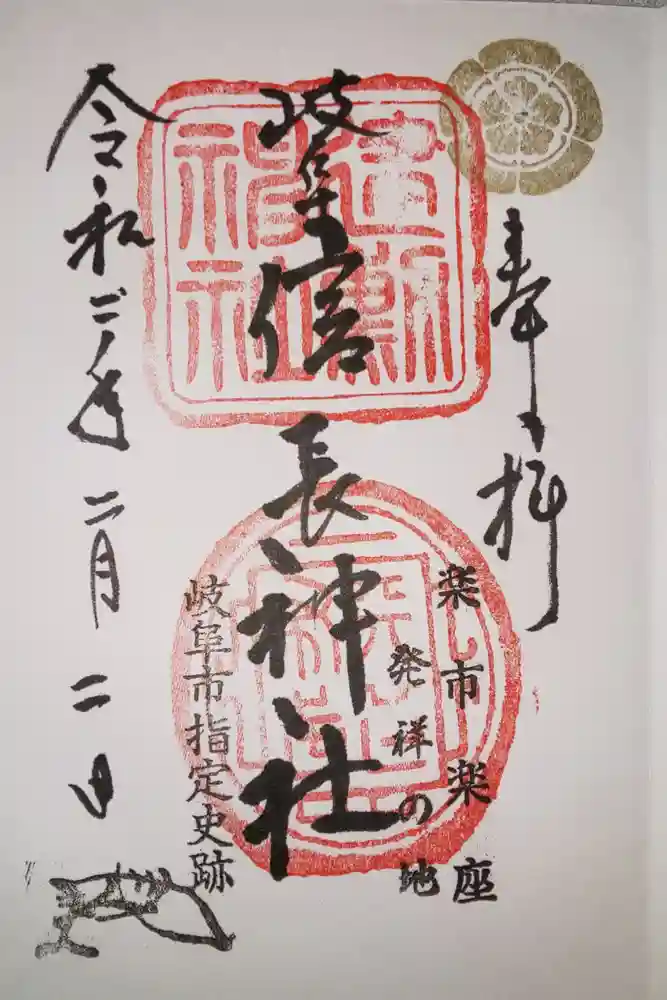 奉拝
楽市楽座
発祥の地
建勲
神社
岐阜信長神社
岐阜市指定史跡
令和二年二月二日